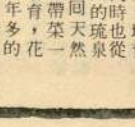 時也從
的琉泉
回天然
帶菜一
育，花
年多的